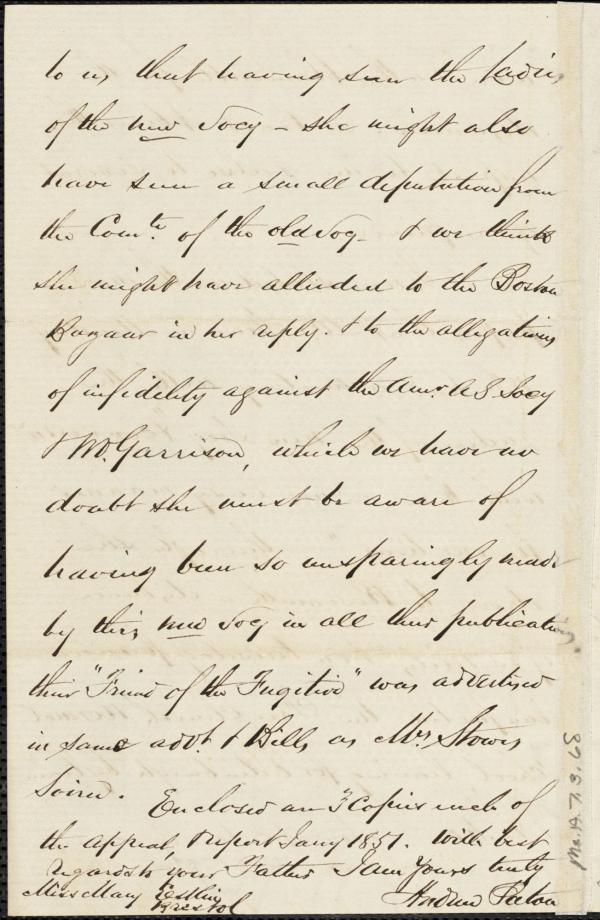 to us that having seen the Ladies
of the new Socy - she might also
have seen a small deputation from
the Comte. of the old Socy - & we think
she might have alluded to the Boston
Bazaar in her reply. & to the allegations
of infidelity against the Amn. A S Socy
& Mr. Garrison, which we have no
doubt she must be aware of
having been so unsparingly made
by this new Socy in all their publications
their "Friend of the Fugitive" was advertised
in same advt. & Bills as Mrs Stowes
Soiree. Enclosed are 3 Copies each of
the Appeal, & Report Jany 1851. With best
regards to your Father I am yours truly
Andrew Paton
Miss Mary Estlin
Bristol
Ms.A.7.3.68